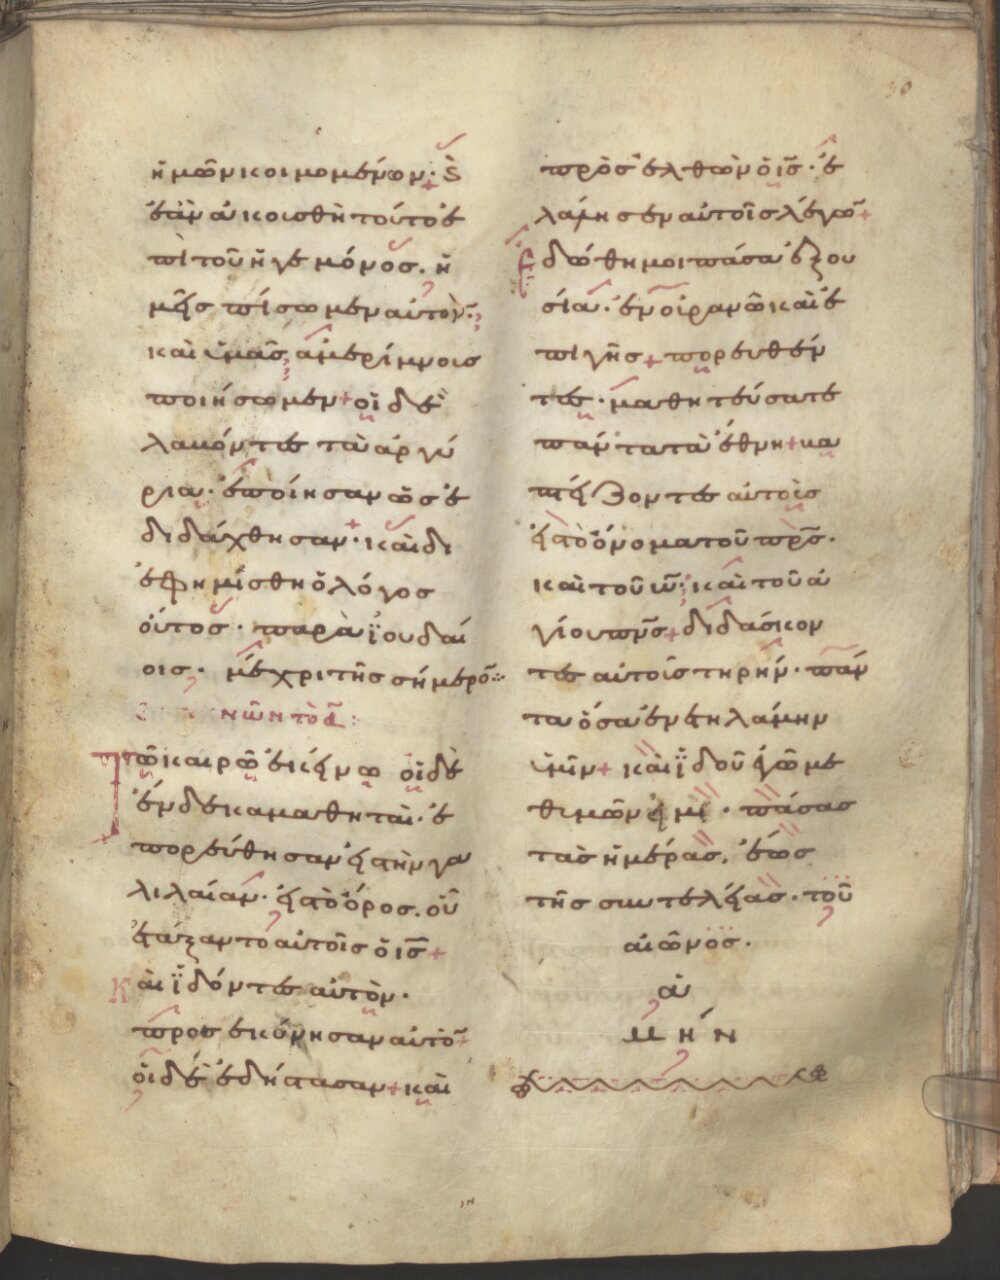 30
ἡμῶν κοιμομένων· καὶ
ἐὰν ἀκουσθῇ τοῦτο ἐ
πὶ τοῦ ἡγεμόνος· ἡ
μεῖς πείσωμεν αὐτόν·
καὶ ὑμᾶς ἀμερίμνους
ποιήσωμεν + οἱ δὲ
λαβόντες τὰ ἀργύ
ρια· ἐποίησαν ὡς ἐ
διδάχθησαν· καὶ δι
εφημίσθη ὁ λόγος
οὗτος· παρὰ ϊουδαί
οις· μέχρι τῆς σήμερο̅
Τῶ καιρῶ ἐκείνω οἱ δὲ
ἕνδεκα μαθηταὶ· ἐ
πορεύθησαν εἰς τὴν γα
λιλαίαν· εἰς τὸ ὄρος· οὗ
ἐτάξαντο αὐτοῖς ὁ ις̅ +
Καὶ ϊδόντες αὐτὸν·
προσεκύνησαν αὐτὸ̅
οἱ δὲ ἐδίστασαν + καὶ
προσελθὼν ὁ ις̅· ἐ
λάλησεν αὐτοῖς λέγω̅ +
Ἐδόθη μοι πᾶσα ἐξου
σία· ἐν οὐρανῶ καὶ ἐ
πὶ γῆς + πορευθέν
τες· μαθητεύσατε
πάντα τὰ ἔθνη + βα
πτίζοντες αὐτοὺς
εἰς τὸ ὄνομα τοῦ πρ̅ς·
καὶ τοῦ υυ̅· καὶ τοῦ ἁ
γίου πν̅ς + διδάσκον
τες αὐτοὺς τηρεῖν· πάν
τα ὅσα ἐνετειλάμην
ὑμῖν + καὶ ϊδοὺ ἐγὼ με
θ' ὑμῶν εἰμὶ· πάσας
τὰς ἡμέρας· ἕως
τῆς συντελείας· τοῦ
αἰῶνος·
ἀ
μήν